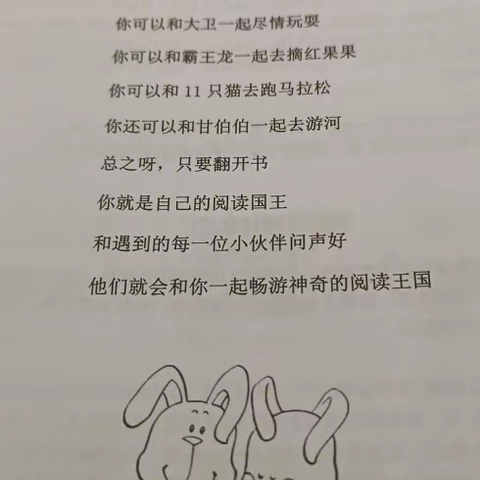 你可以和大卫一起尽情玩耍
你可以和霸王龙一起去摘红果果
你可以和 11 只猫去跑马拉松
你还可以和甘伯伯一起去游河
总之呀，只要翻开书
你就是自己的阅读国王
和遇到的每一位小伙伴问声好
他们就会和你一起畅游神奇的阅读王国